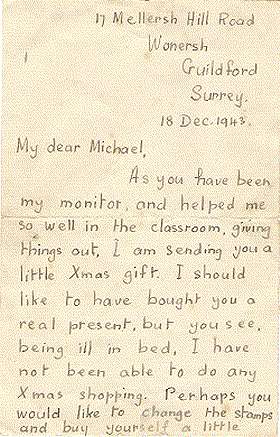 17 Mellersh Hill Road
Wonersh
Guildford
Surrey.
18 Dec. 1943.
My dear Michael,
As you have been
my monitor, and helped me
so well in the classroom, giving
things out, I am sending you a
little Xmas gift. I should
like to have bought you a
real present, but you see,
being ill in bed, I have
not been able to do any
Xmas shopping. Perhaps you
would like to change the stamps
and buy yourself a little